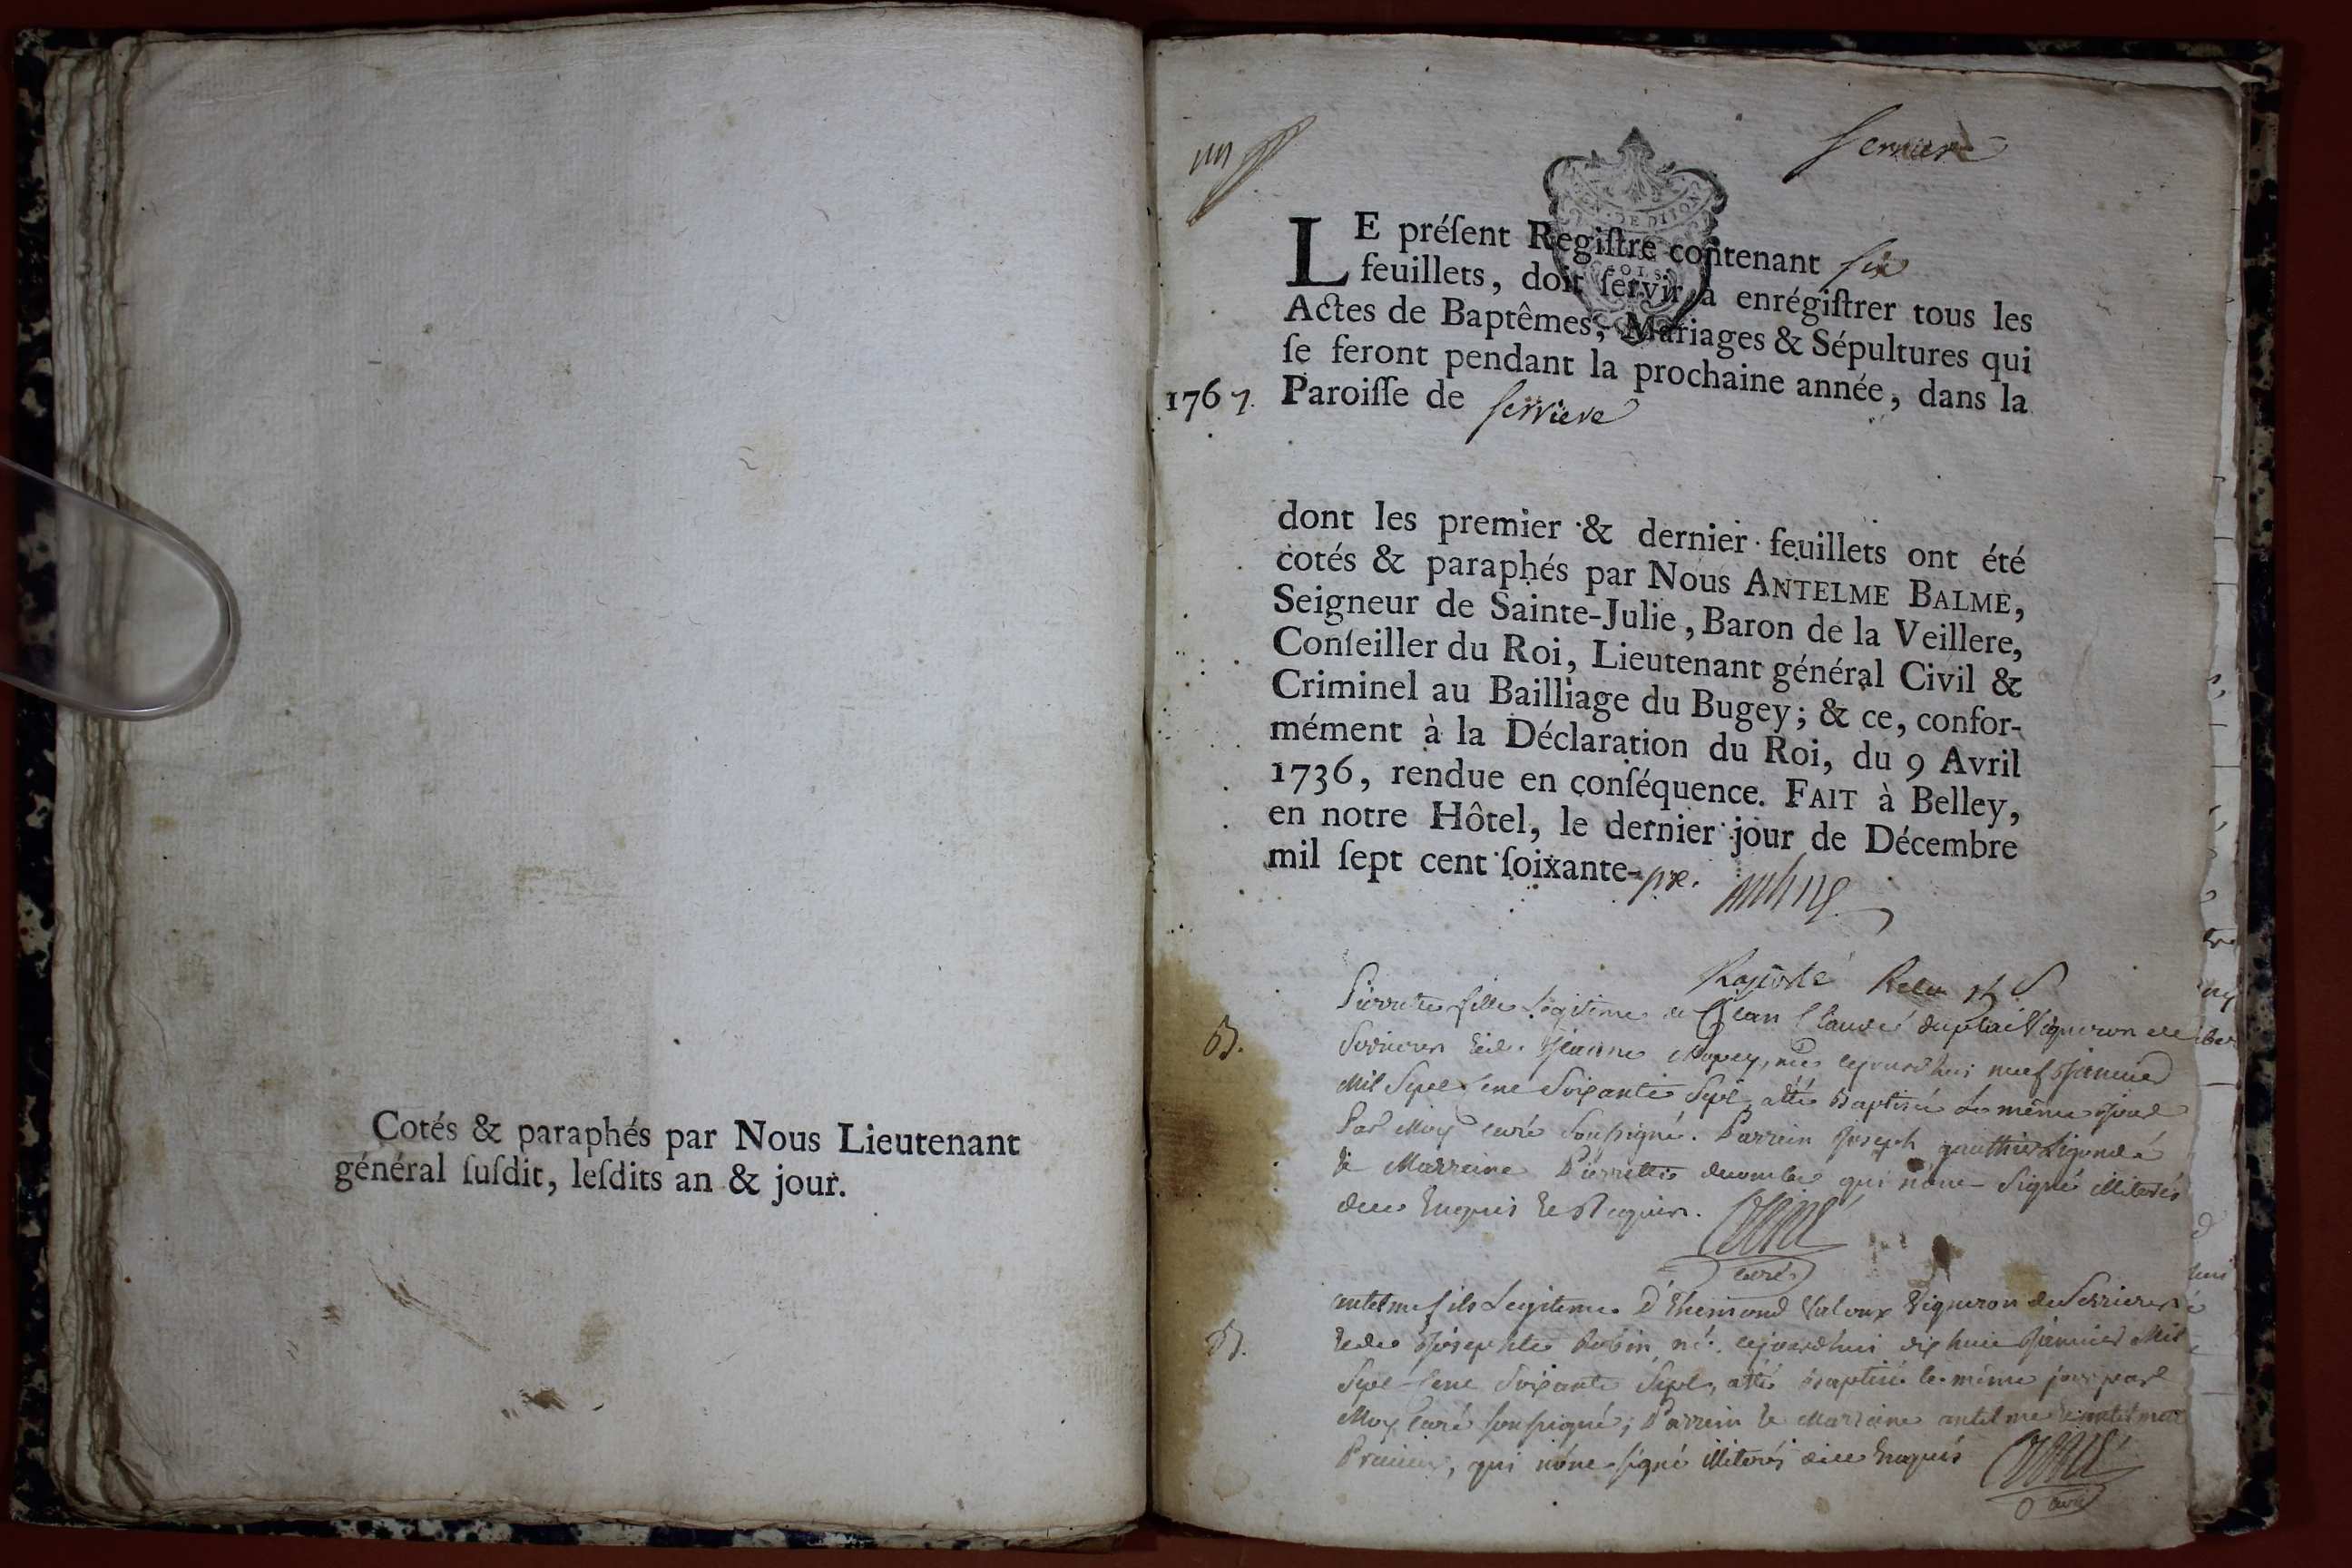 Cotés & paraphés par Nous Lieutenant
général ſuſdit, leſdits an & jour.
Serriere
GEN · DE DIJON
SOLS
LE préſent Regiſtre contenant ſix
feuillets, doit ſervir à enrégiſtrer tous les
Actes de Baptêmes, Mariages & Sépultures qui
ſe feront pendant la prochaine année, dans la
1767. Paroiſſe de ſerriere
dont les premier & dernier feuillets ont été
cotés & paraphés par Nous ANTELME BALME,
Seigneur de Sainte-Julie, Baron de la Veillere,
Conſeiller du Roi, Lieutenant général Civil &
Criminel au Bailliage du Bugey; & ce, confor-
mément à la Déclaration du Roi, du 9 Avril
1736, rendue en conſéquence. FAIT à Belley,
en notre Hôtel, le dernier jour de Décembre
mil ſept cent ſoixante-six.
fille Légitime de Jean Claude Vigneron de
B. Serrieres Jeanne née cejourdhui neuf Janvier
Mil Sept Cent Soixante Sept, a été Baptisée Le même Jour
Par Moy curé Soussigné. Parrein Joseph gauthier
et Marreine Pierrette qui n'ont Signé illiterés
de ce Enquis et Requis.
curé
antelme fils Legitime D' Vigneron de Serrieres
B. et de Josephte Robin né cejourdhui dix huit Janvier Mil
Sept Cent Soixante Sept, a été Baptisé le même jour par
Moy Curé soussigné; Parrein et Marreine antelme et
qui n'ont signé illiterés de ce Enquis
curé